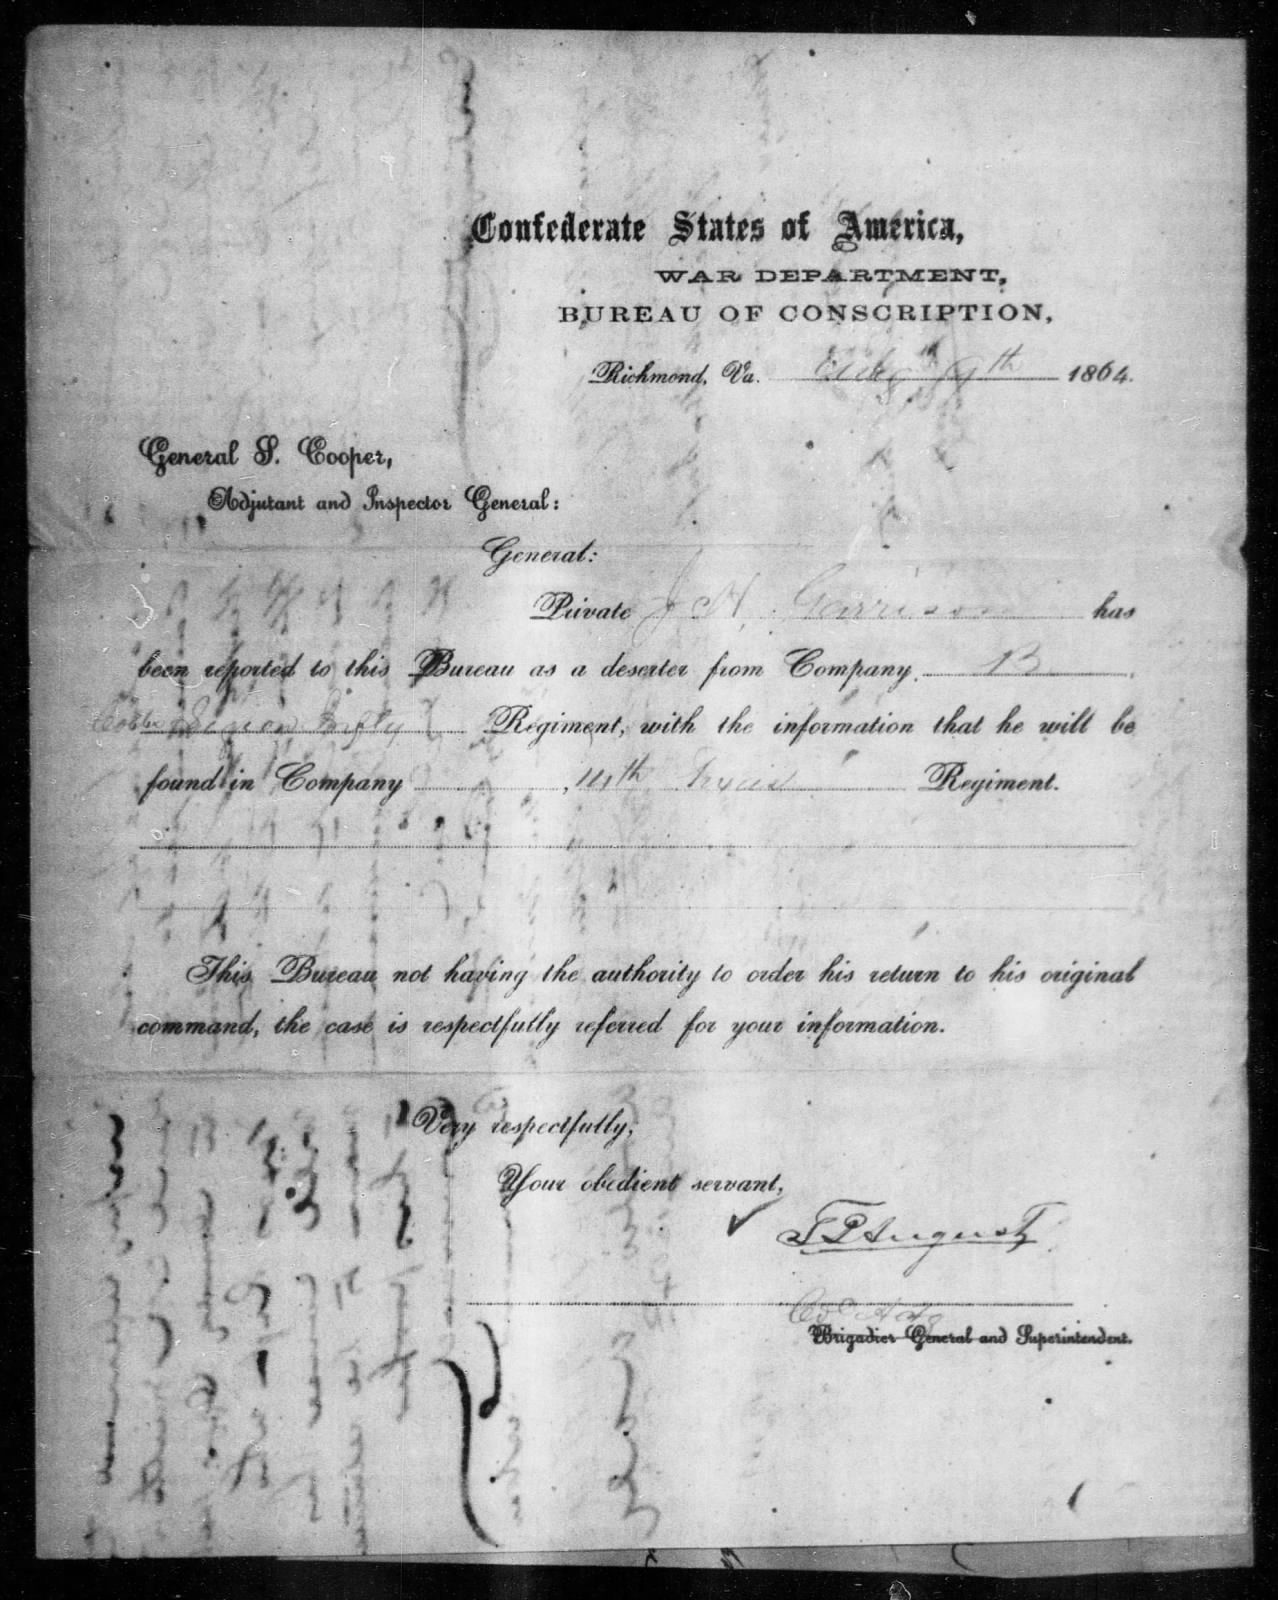 Confederate States of America,
WAR DEPARTMENT,
BUREAU OF CONSCRIPTION,
Richmond, Va. 9th 1864.
General S. Cooper,
Adjutant and Inspector General:
General:
Private J H Garrison has
been reported to this Bureau as a deserter from Company B
Cobbs Legion Infty Regiment, with the information that he will be
found in Company , Regiment.
This Bureau not having the authority to order his return to his original
command, the case is respectfully referred for your information.
Very respectfully,
Your obedient servant,
T P August
Col &
Brigadier General and Superintendent.